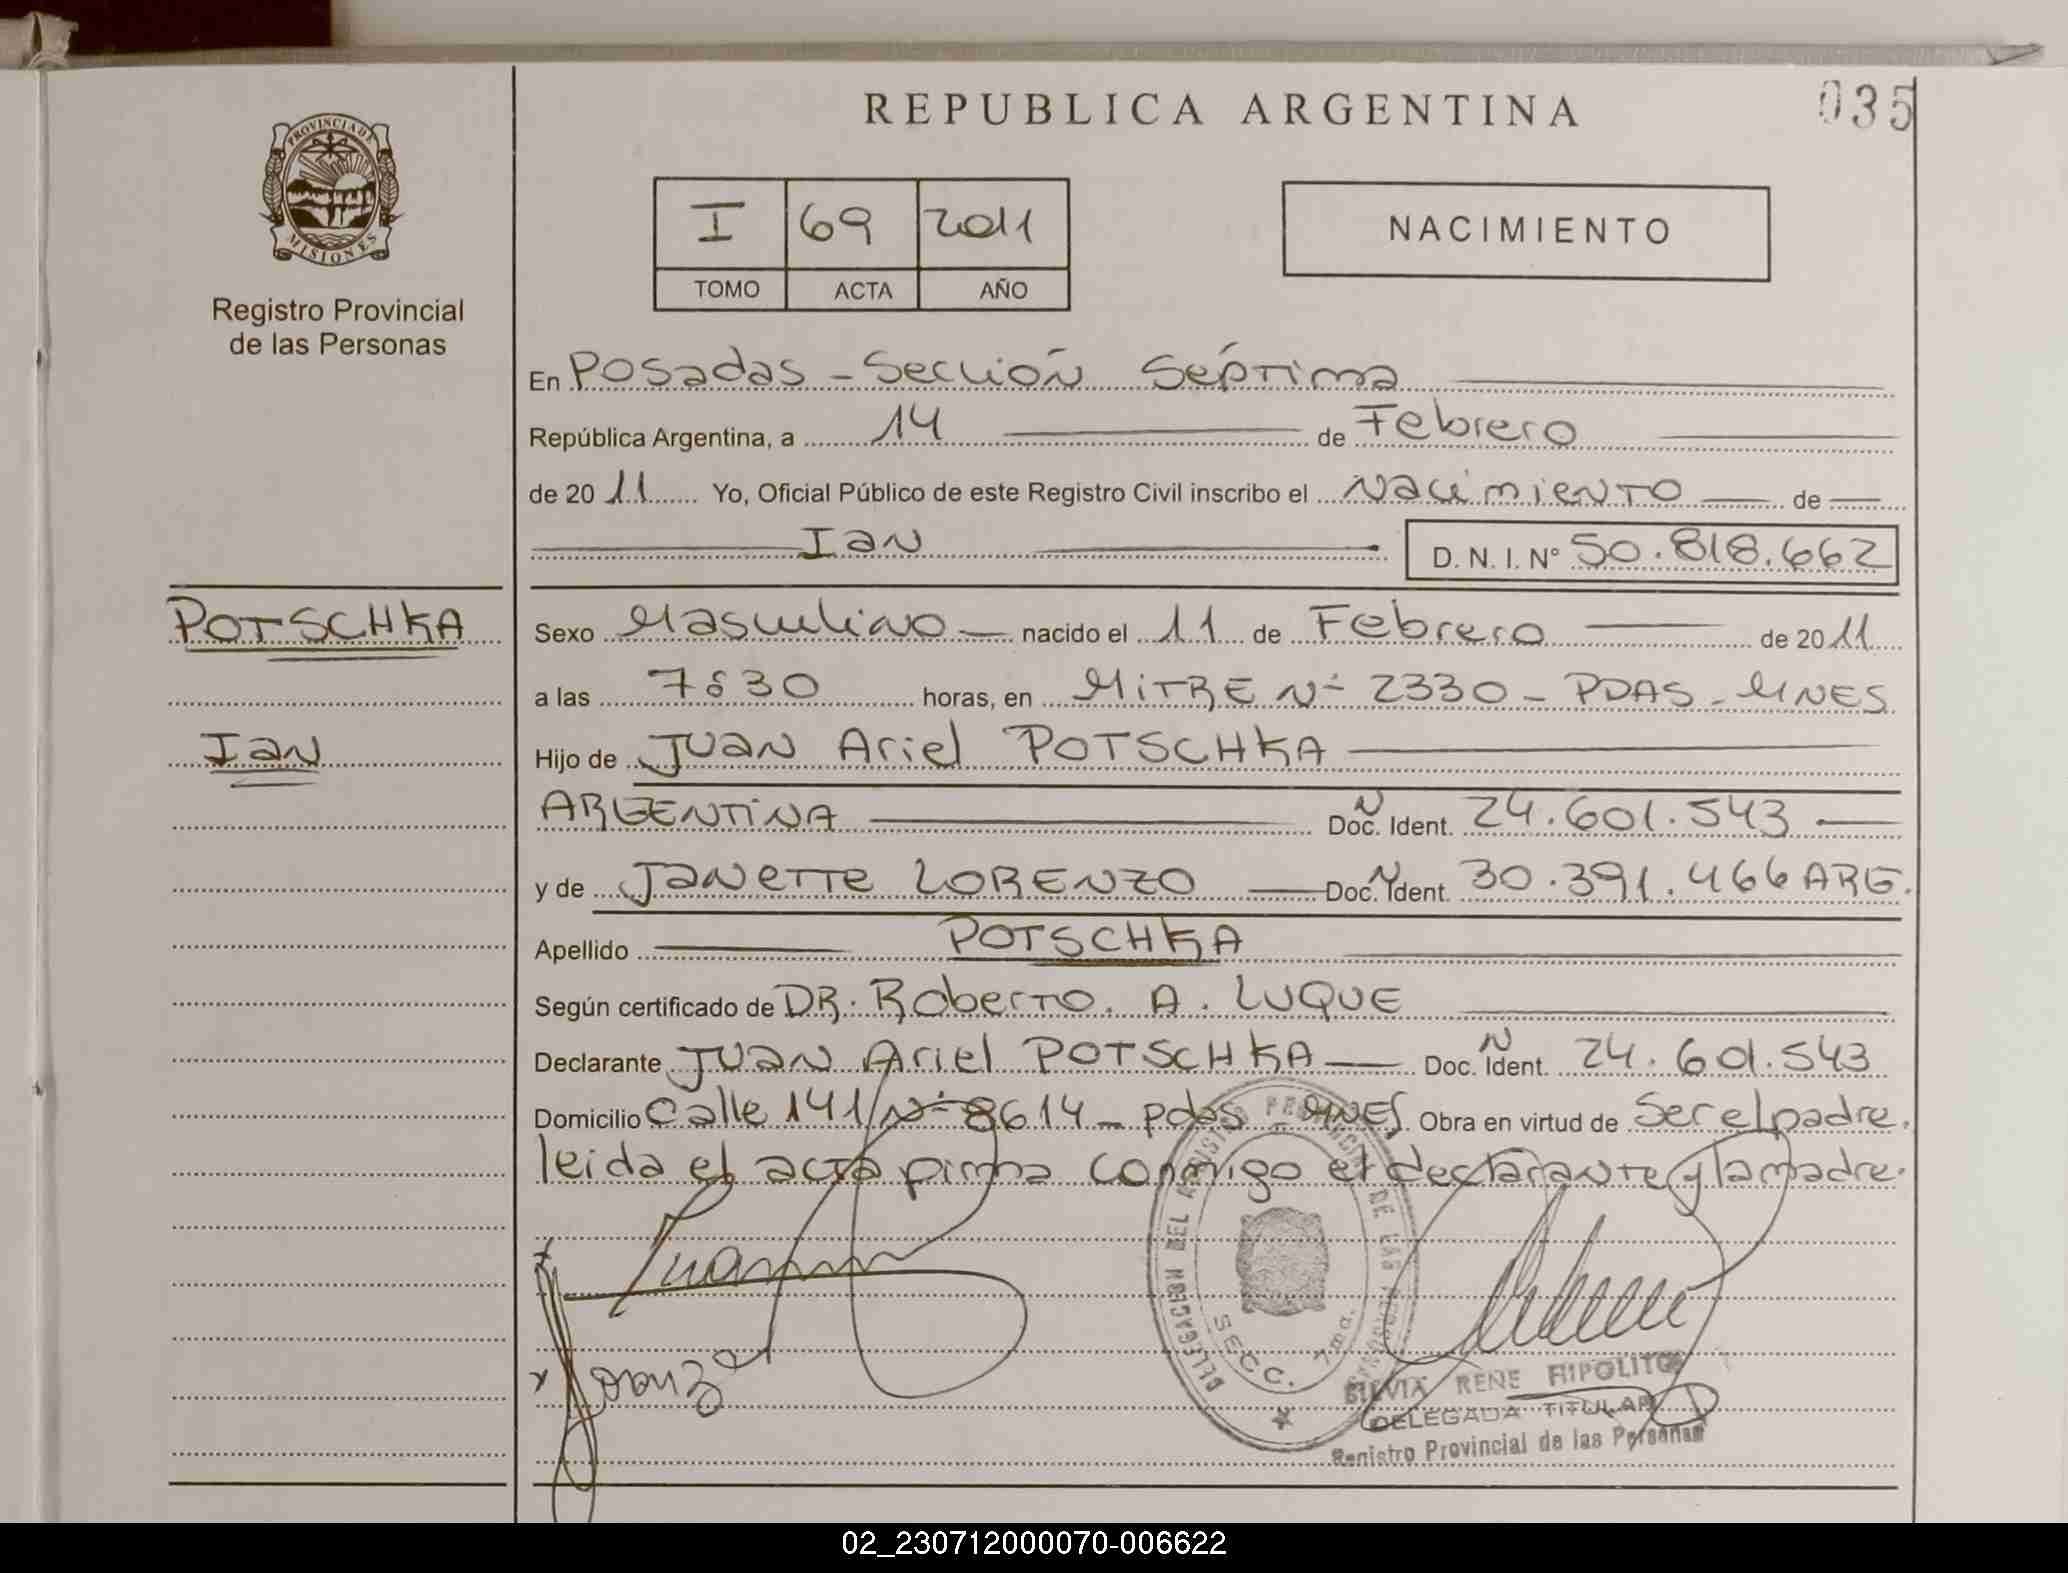 REPUBLICA ARGENTINA
035
PROVINCIA DE
MISIONES
Registro Provincial
de las Personas
I 69 2011
TOMO ACTA AÑO
NACIMIENTO
En Posadas - Sección Séptima
República Argentina, a 14 de Febrero
de 2011 Yo, Oficial Público de este Registro Civil inscribo el Nacimiento de
Ian D. N. I. N° 50.818.662
POTSCHKA
Ian
Sexo Masculino nacido el 11 de Febrero de 2011
a las 7 ó 30 horas, en MITRE Nº 2330 - PDAS - MNES
Hijo de Juan Ariel POTSCHKA
ARGENTINA Doc. N Ident. 24.601.543
y de Janette LORENZO Doc. N Ident. 30.391.466 ARG.
Apellido POTSCHKA
Según certificado de DR. Roberto. A. LUQUE
Declarante Juan Ariel POTSCHKA Doc. N Ident. 24.601.543
Domicilio Calle 141 / Nº 8614 - pdas MNES. Obra en virtud de Ser el padre.
leida el acta firma conmigo el declarante y la madre.
DELEGACION DEL REGISTRO PROVINCIAL DE LAS PERSONAS
SECC. 7ma.
SILVIA RENE HIPOLITO
DELEGADA TITULAR
Registro Provincial de las Personas
02_230712000070-006622